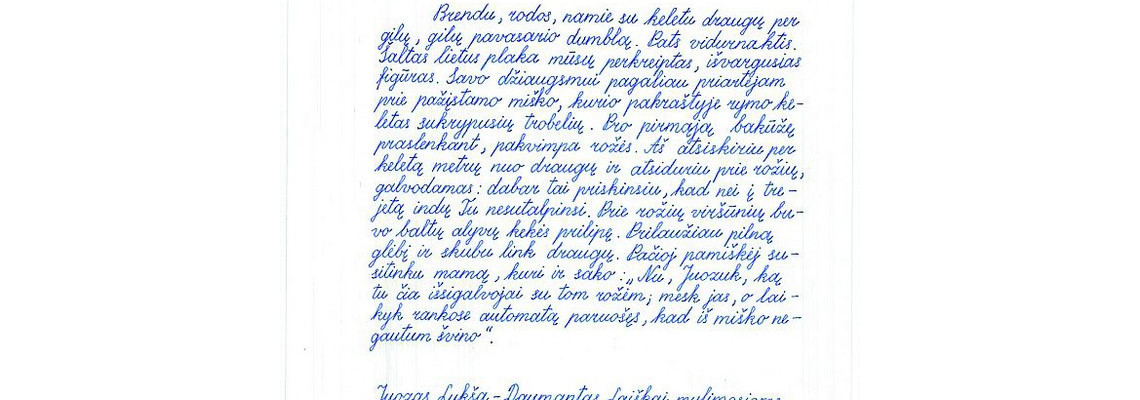 Brendu, rodos, namie su keletu draugų per
gilų, gilų pavasario dumblą. Pats vidurnaktis.
Šaltas lietus plaka mūsų perkreiptas, išvargusias
figūras. Savo džiaugsmui pagaliau priartėjam
prie pažįstamo miško, kurio pakraštyje rymo ke-
letas sukrypusių trobelių. Pro pirmąją bakūžę
praslenkant, pakvimpa rožės. Aš atsiskiriu per
keletą metrų nuo draugų ir atsiduriu prie rožių,
galvodamas: dabar tai priskinsiu, kad nei į tre-
jetą indų Tu nesutalpinsi. Prie rožių viršūnių bu-
vo baltų alyvų kekės prilipę. Prilaužiau pilną
glėbį ir skubu link draugų. Pačioj pamiškėj su-
sitinku mamą, kuri ir sako: „Nu, Juozuk, ką
tu čia išsigalvojai su tom rožėm; mesk jas, o lai-
kyk rankose automatą paruošęs, kad iš miško ne-
gautum švino".
Juozas Lukša-Daumantas Laiškai mylimosioms